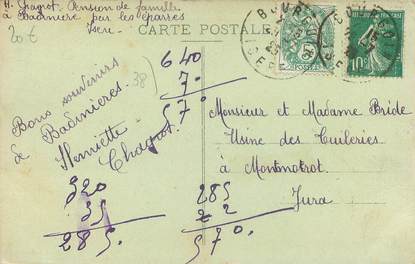 H. Chagnot. Pension de famille
à Badinière par les éparres
Isère
20 €
CARTE POSTALE
BOURG
ISERE
5c
POSTES
10c
640
70
570.
38
Bons souvenirs
de Badinières.
Henriette
Chagnot.
Monsieur et Madame Bride
Usine des Tuileries
à Montmotrot
Jura
320
35
285.
285
x 2
570.